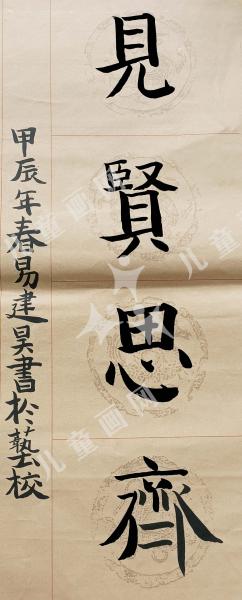 見賢思齊
甲辰年春易建昊書於藝校
儿童画网